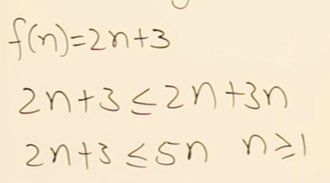 f(n)=2n+3
2n+3≤2n+3n
2n+3≤5n n≥1